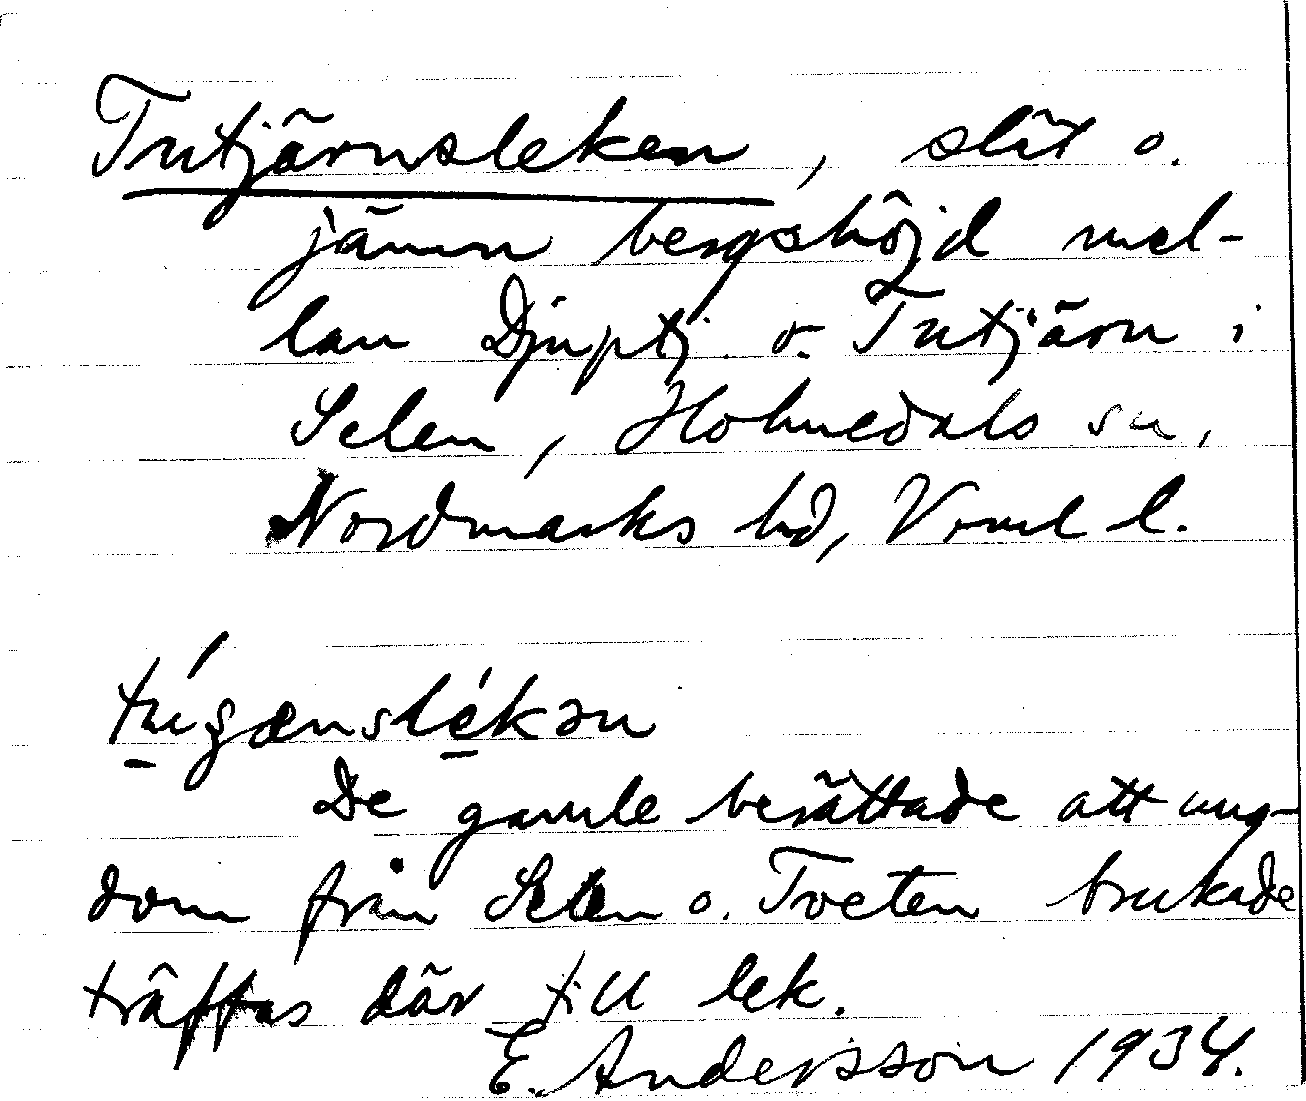 Tutjärnsleken, slät o.
jämn bergshöjd mel-
lan Djuptj. o. Tutjärn i
Selen, Holmedals sn,
Nordmarks hd, Vrml l.
De gamle berättade att ung-
dom från Selen o. Tveten brukade
träffas där till lek.
E. Andersson 1934.